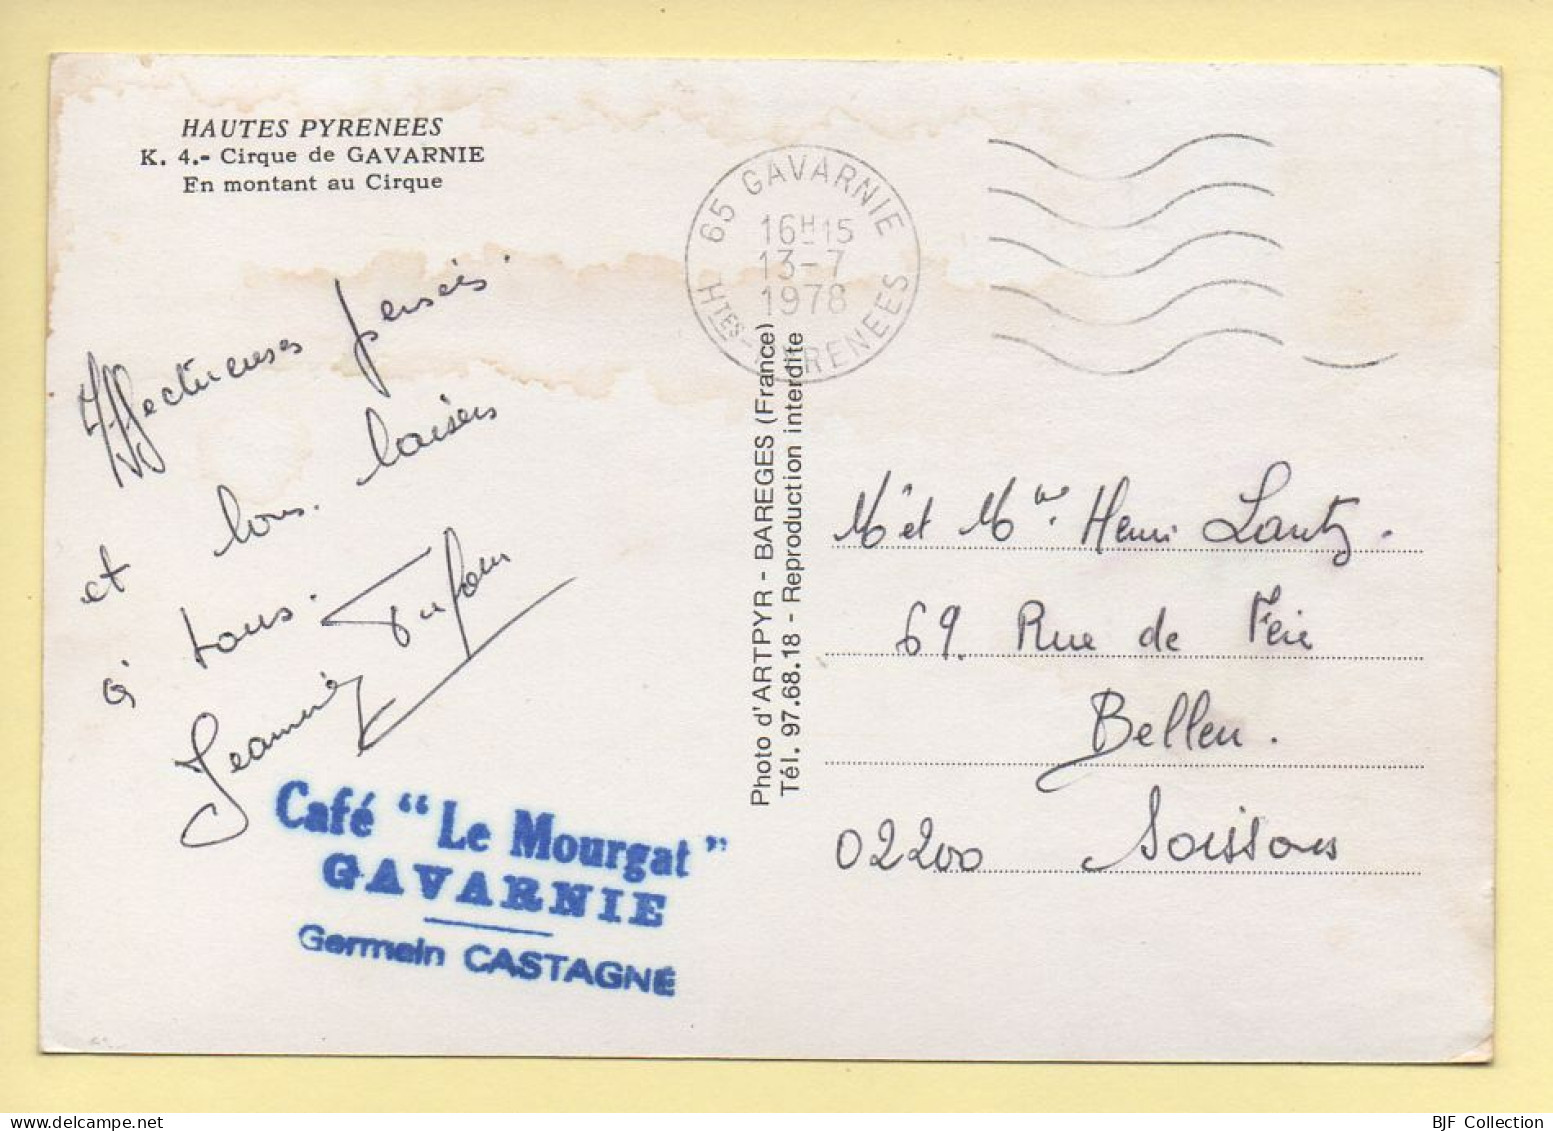 HAUTES PYRENEES
K. 4.- Cirque de GAVARNIE
En montant au Cirque
65 GAVARNIE
16H15
13-7
1978
HTES-PYRENEES
Affectueuses pensées.
et bons baisers
à tous.
Jeannine Dufour
Café "Le Mourgat"
GAVARNIE
Germain CASTAGNÉ
Photo d'ARTPYR - BAREGES (France)
Tél. 97.68.18 - Reproduction interdite
Mr et Mme Henri Lantz.
69. Rue de Feie
Belleu.
02200 Soissons
BJF Collection